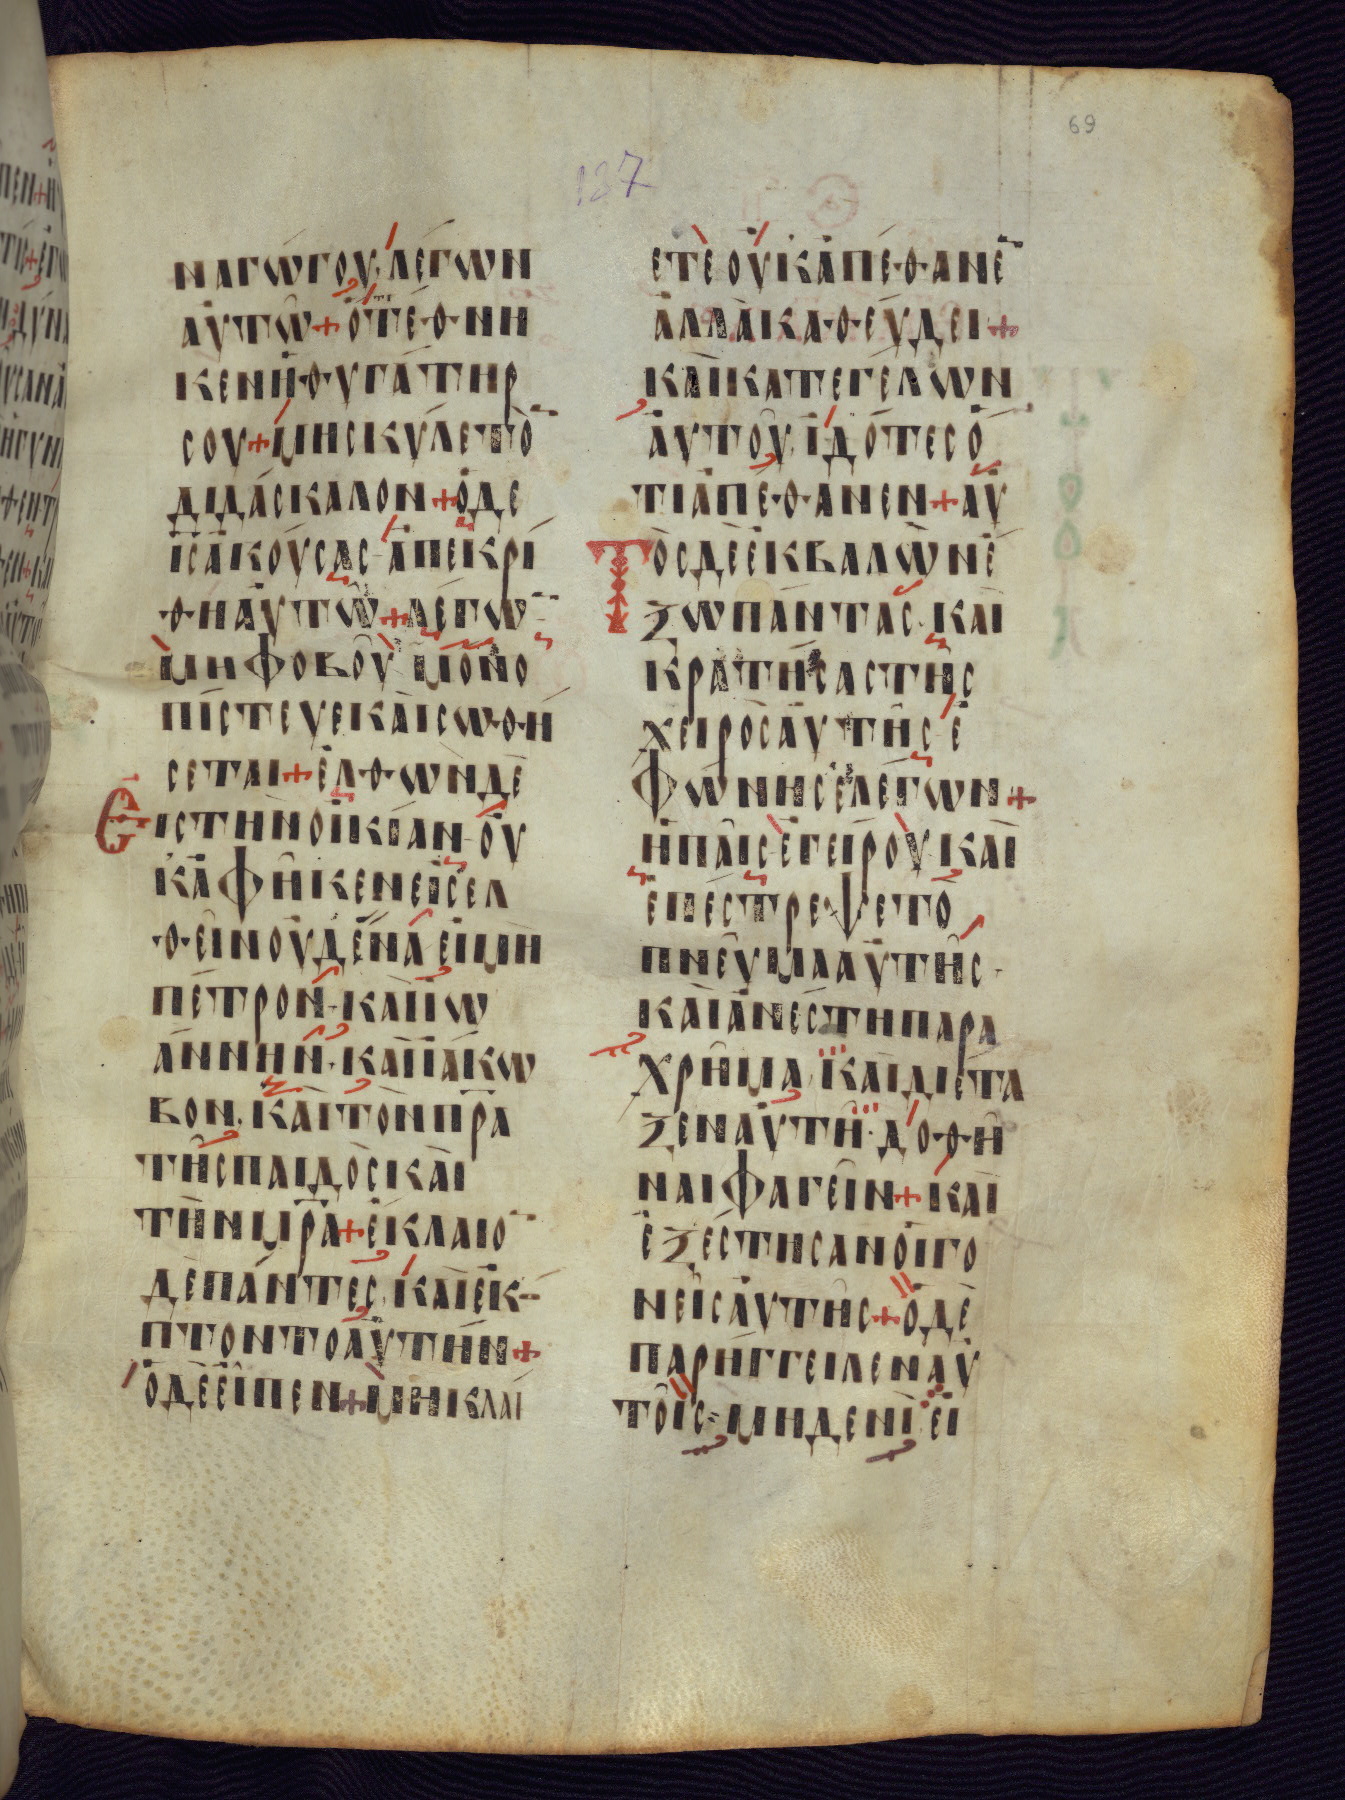 69
187
ΝΑΓΩΓΟΥ ΛΕΓΩΝ
ΑΥΤΩ + ΟΤΕΘΝΗ
ΚΕΝΗ ΘΥΓΑΤΗΡ
ΣΟΥ + ΜΗΣΚΥΛΕΤΟ̅
ΔΙΔΑΣΚΑΛΟΝ + ΟΔΕ
ΙΣ ΑΚΟΥΣΑΣ ΑΠΕΚΡΙ
ΘΗ ΑΥΤΩ + ΛΕΓΩ̅
ΜΗΦΟΒΟΥ ΜΟΝΟ
ΠΙΣΤΕΥΕ ΚΑΙ ΣΩΘΗ
ΣΕΤΑΙ + ΕΛΘΩΝ ΔΕ
ΕΙΣ ΤΗΝ ΟΙΚΙΑΝ ΟΥ
Κ ΑΦΗΚΕΝ ΕΙΣΕΛ
ΘΕΙΝ ΟΥΔΕΝΑ ΕΙΜΗ
ΠΕΤΡΟΝ · ΚΑΙ ΙΩ
ΑΝΝΗΝ · ΚΑΙ ΙΑΚΩ
ΒΟΝ · ΚΑΙ ΤΟΝ Π̅Ρ̅Α
ΤΗΣ ΠΑΙΔΟΣ ΚΑΙ
ΤΗΝ Μ̅Ρ̅Α + ΕΚΛΑΙΟ̅
ΔΕ ΠΑΝΤΕΣ ΚΑΙ ΕΚ
ΠΤΟΝΤΟ ΑΥΤΗΝ +
Ο ΔΕ ΕΙΠΕΝ + ΜΗ ΚΛΑΙ
ΕΤΕ ΟΥΚ ΑΠΕΘΑΝΕ̅
ΑΛΛΑ ΚΑΘΕΥΔΕΙ +
ΚΑΙ ΚΑΤΕΓΕΛΩΝ
ΑΥΤΟΥ ΙΔΟΤΕΣ Ο
ΤΙ ΑΠΕΘΑΝΕΝ + ΑΥ
ΤΟΣ ΔΕ ΕΚΒΑΛΩΝ Ε
ΞΩ ΠΑΝΤΑΣ · ΚΑΙ
ΚΡΑΤΗΣΑΣ ΤΗΣ
ΧΕΙΡΟΣ ΑΥΤΗΣ Ε
ΦΩΝΗΣΕ ΛΕΓΩΝ +
Η ΠΑΙΣ ΕΓΕΙΡΟΥ ΚΑΙ
ΕΠΕΣΤΡΕΨΕ ΤΟ
ΠΝΕΥΜΑ ΑΥΤΗΣ ·
ΚΑΙ ΑΝΕΣΤΗ ΠΑΡΑ
ΧΡΗΜΑ ΚΑΙ ΔΙΕΤΑ
ΞΕΝ ΑΥΤΗ · ΔΟΘΗ
ΝΑΙ ΦΑΓΕΙΝ + ΚΑΙ
ΕΞΕΣΤΗΣΑΝ ΟΙ ΓΟ
ΝΕΙΣ ΑΥΤΗΣ + Ο ΔΕ
ΠΑΡΗΓΓΕΙΛΕΝ ΑΥ
ΤΟΙΣ · ΜΗΔΕΝΙ ΕΙ